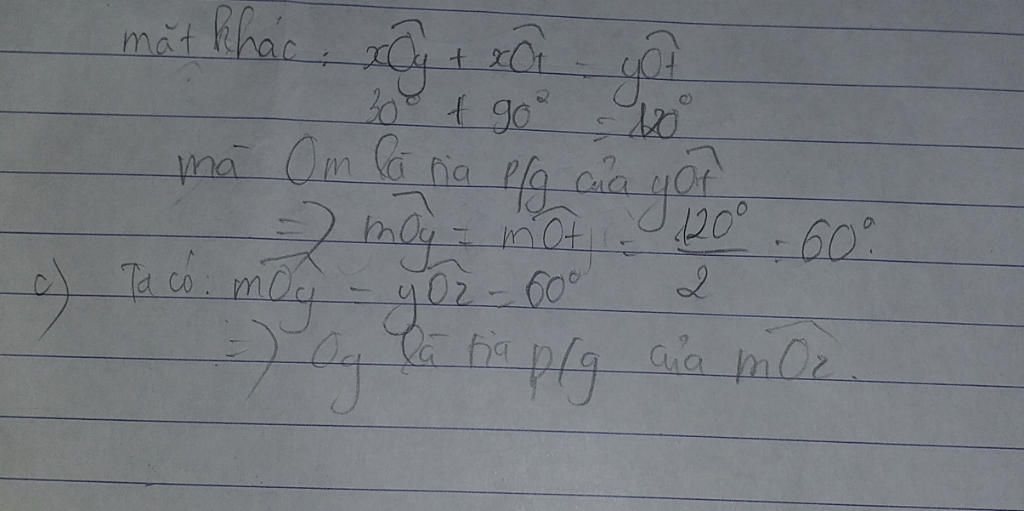 mặt khác : xÔy + xÔt = yÔt
30° + 90° = 120°
mà Om là tia p/g của yÔt
=> mÔy = mÔt = 120°/2 = 60°.
c) Ta có : mÔy = yÔz = 60°
=> Oy là tia p/g của mÔz.